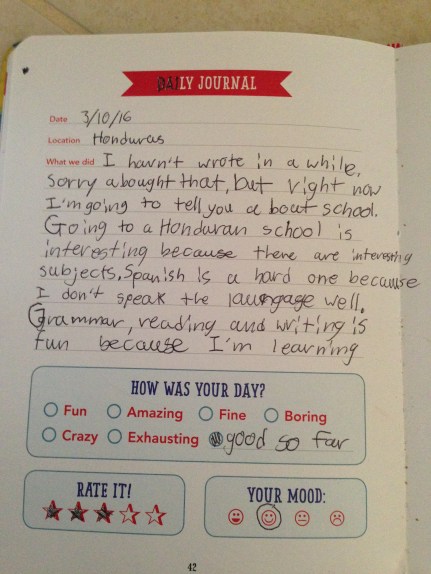 DAILY JOURNAL
Date 3/10/16
Location Honduras
What we did I havn't wrote in a while,
sorry abought that, but right now
I'm going to tell you a bout school.
Going to a Honduran school is
interesting because there are interesting
subjects. Spanish is a hard one because
I don't speak the laungage well.
Grammar, reading and writing is
fun because I'm learning
HOW WAS YOUR DAY?
Fun Amazing Fine Boring
Crazy Exhausting good so far
RATE IT!
YOUR MOOD:
42